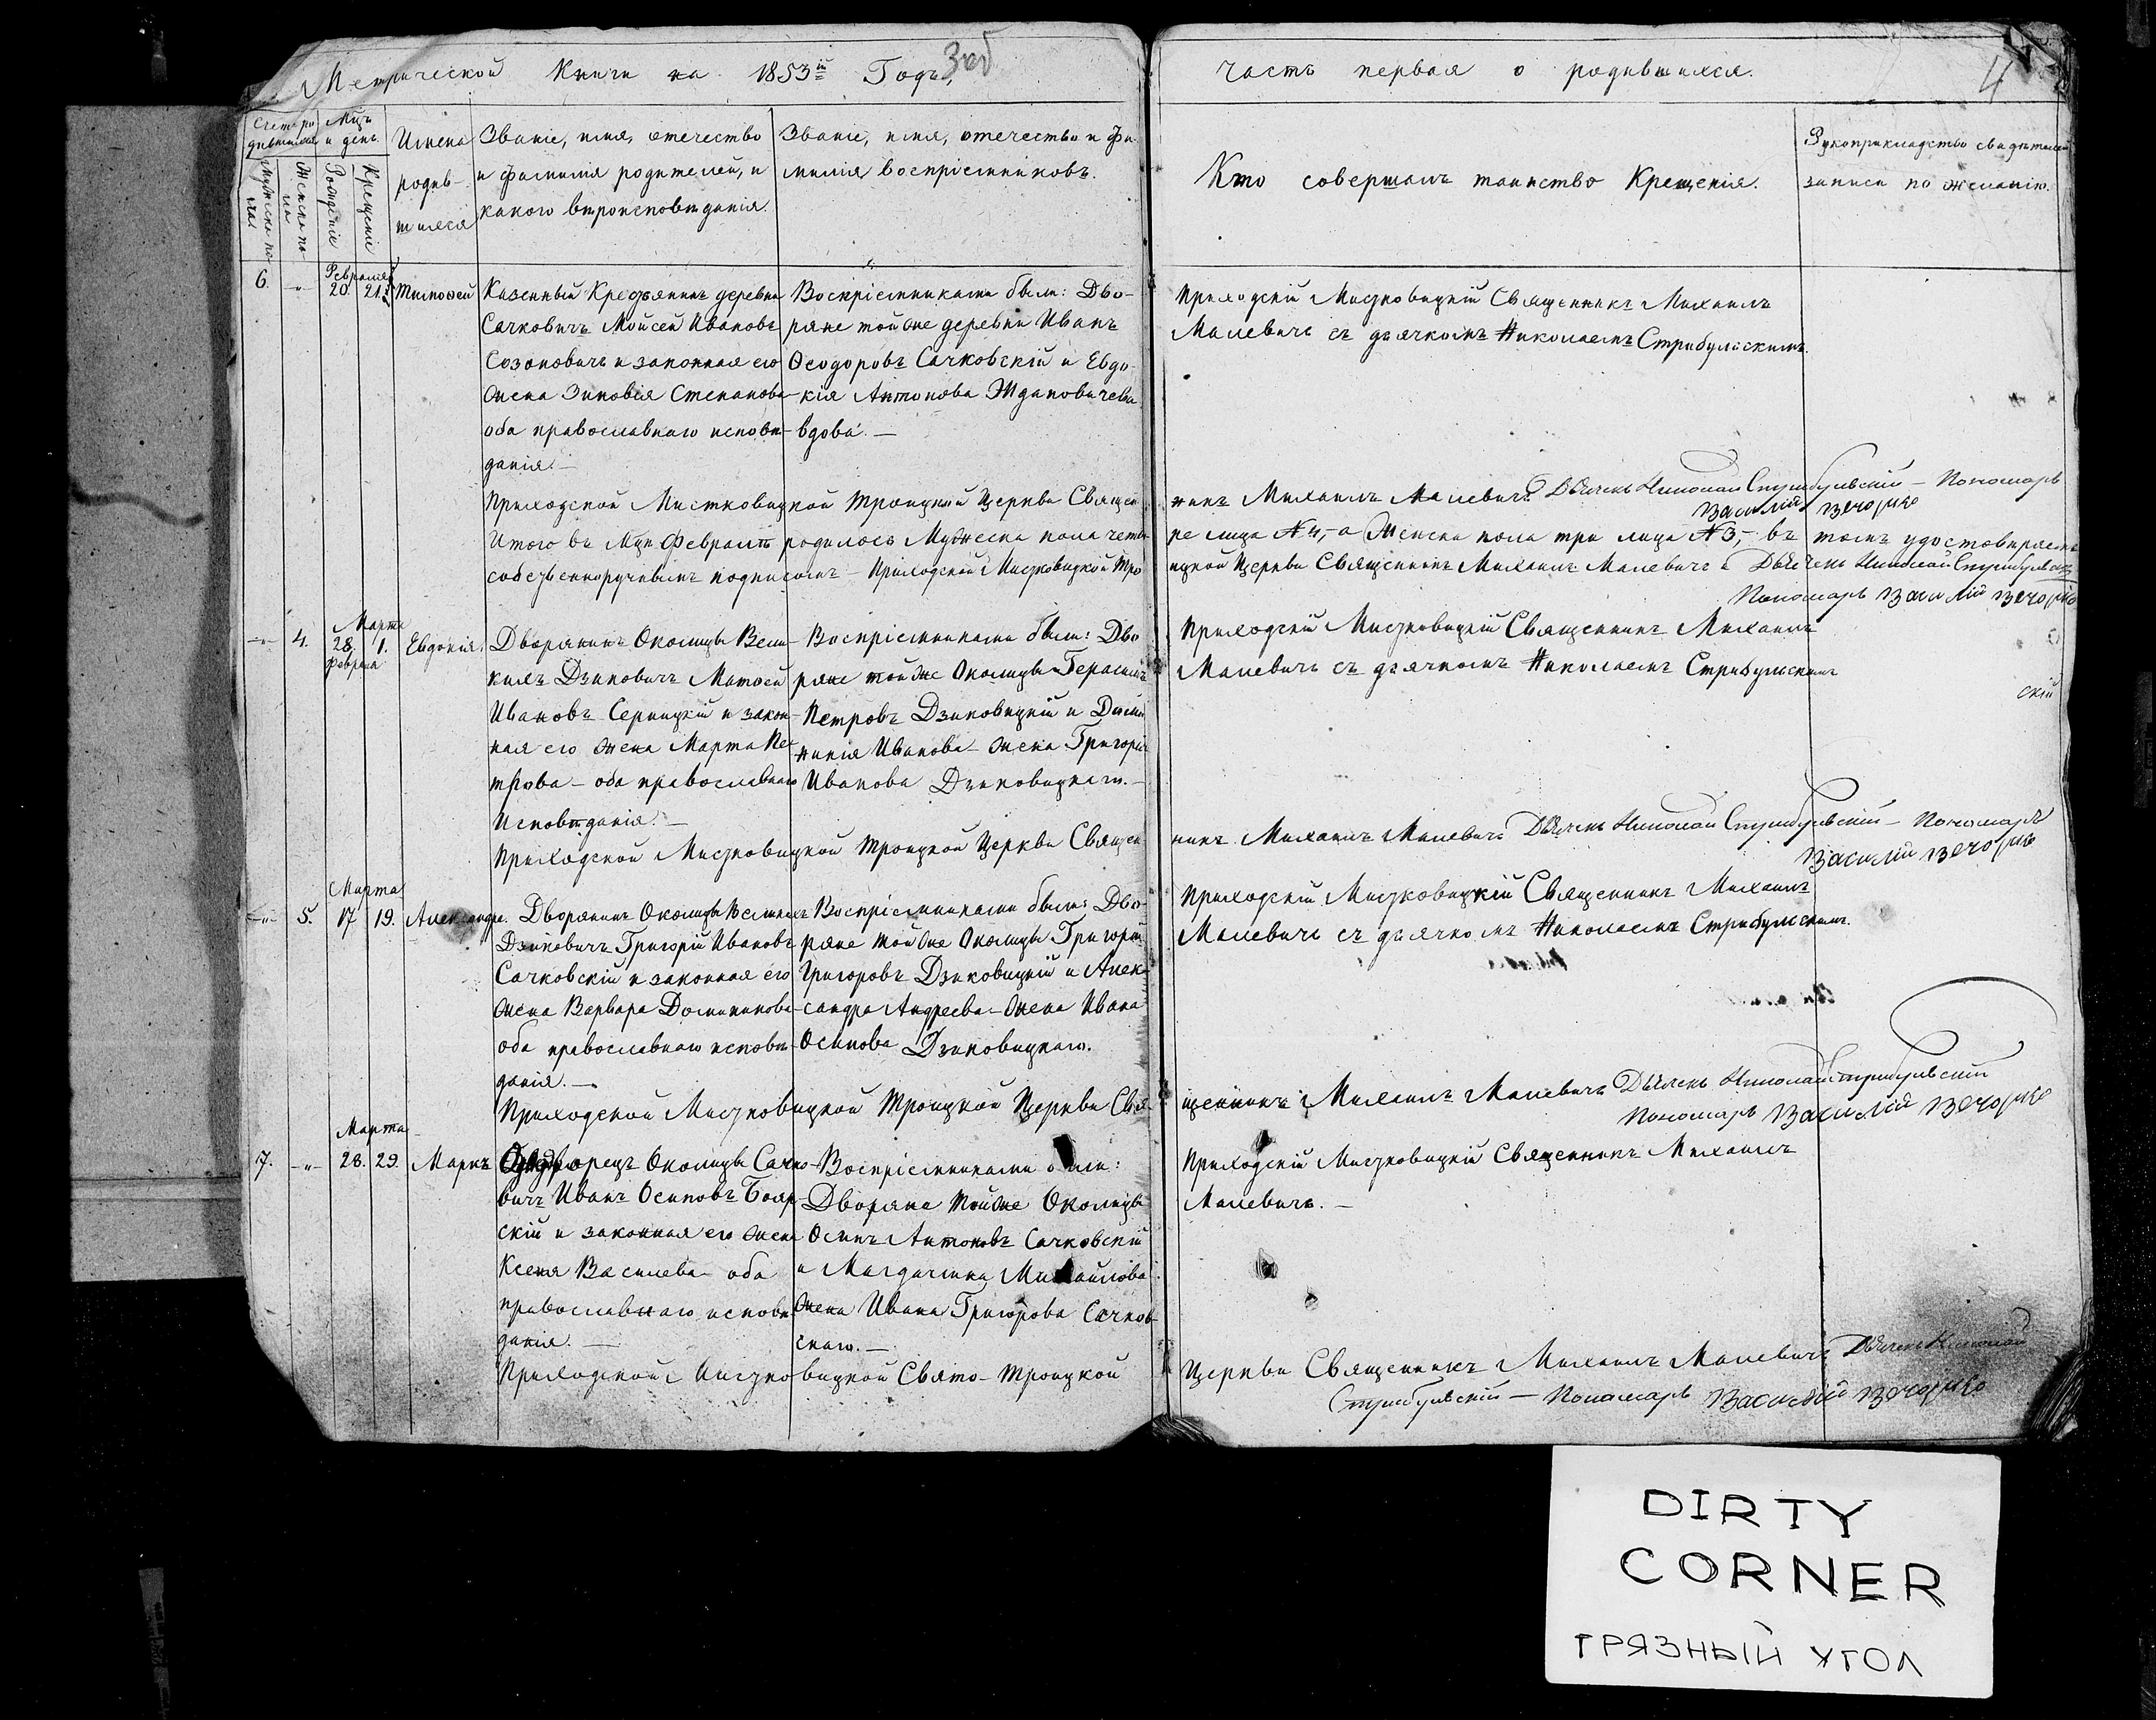 Метрической Книги на 1853й Годъ,
Зоб
часть первая о родившихся.
4
Счетъ родившихся
Мцъ и день
Имена родившихся
Званіе, имя, отечество и фамилія родителей, и какого вѣроисповѣданія.
Званіе, имя, отечество и фамилія воспріемниковъ.
Кто совершалъ таинство Крещенія.
Рукоприкладство свидѣтелей записи по желанію.
Мужеска пола
Женска пола
Рожденіе
Крещеніе
6.
Февраля
20. 21.
Тимофей
Казенный Крестьянинъ деревни
Сачковичъ Мойсей Ивановъ
Созоновичъ и законная его
жена Зиновія Степанова
оба православнаго исповѣ-
данія. —
Воспріемниками были: Дво-
ряне той же деревни Иванъ
Ѳеодоровъ Сачковскій и Евдо-
кія Антонова Ждановичева
вдова. —
Приходскій Мистковицкій Священникъ Михаилъ
Малевичъ съ дьячкомъ Николаемъ Стрибульскимъ.
Приходской Мистковицкой Троицкой Церкви Священ
никъ Михаилъ Малевичъ Дьячекъ Николай Стрибульскій — Пономарь
Василій Вечорко
Итого въ Мцѣ Февралѣ родилось Мужеска пола четы
ре лица №4, а Женска пола три лица №3, — въ томъ удостовѣряемъ
собственноручнымъ подписомъ — Приходской Мистковицкой Тро
ицкой Церкви Священникъ Михаилъ Малевичъ Дьячекъ Николай Стрибульскій
Пономарь Василій Вечорко
4.
Марта
28. 1.
Февраля
Евдокія.
Дворянинъ Околицы Вели-
кихъ Дзиковичъ Матѳей
Ивановъ Серницкій и закон-
ная его жена Марта Пе-
трова — оба православнаго
Исповѣданія. —
Воспріемниками были: Дво
ряне той же Околицы Герасимъ
Петровъ Дзиковицкій и Доми
никія Иванова — жена Григорія
Иванова Дзиковицкаго. —
Приходскій Мистковицкій Священникъ Михаилъ
Малевичъ съ дьячкомъ Николаемъ Стрибульскимъ
скій
Приходской Мистковицкой Троицкой Церкви Священ
никъ Михаилъ Малевичъ Дьячекъ Николай Стрибульскій — Пономарь
Василій Вечорко
5.
Марта
17 19.
Александра.
Дворянинъ Околицы Великихъ
Дзиковичъ Григорій Ивановъ
Сачковскій и законная его
жена Варвара Доминикова
оба православнаго исповѣ-
данія. —
Воспріемниками были: Дво-
ряне той же Околицы Григорій
Григоровъ Дзиковицкій и Алек-
сандра Андреева — жена Ивана
Осипова Дзиковицкаго.
Приходскій Мистковицкій Священникъ Михаилъ
Малевичъ съ дьячкомъ Николаемъ Стрибульскимъ.
Приходской Мистковицкой Троицкой Церкви Свя
щенникъ Михаилъ Малевичъ Дьячекъ Николай Стрибульскій
Пономарь Василій Вечорко
7.
Марта
28. 29.
Маркъ
Однодворецъ Околицы Сачко-
вичъ Иванъ Осиповъ Бояр-
скій и законная его жена
Ксенія Василева — оба
православнаго исповѣ-
данія. —
Воспріемниками были:
Дворяне той же Околицы
Осипъ Антоновъ Сачковскій
и Магдалина Михайлова
жена Ивана Григорова Сачков-
скаго. —
Приходскій Мистковицкій Священникъ Михаилъ
Малевичъ. —
Приходской Мистковицкой Свято-Троицкой
Церкви Священникъ Михаилъ Малевичъ Дьячекъ Николай
Стрибульскій — Пономарь Василій Вечорко
DIRTY
CORNER
ГРЯЗНЫЙ УГОЛ